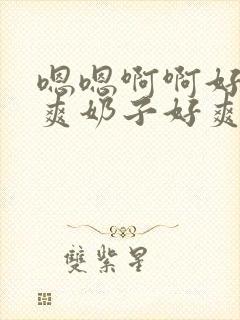 嗯嗯啊啊好
爽奶子好爽
雙紫星